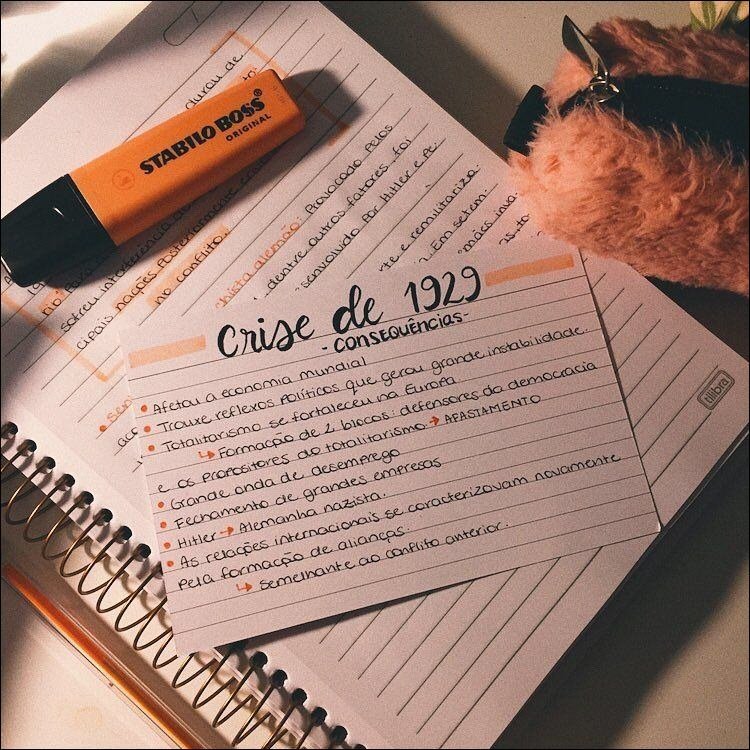 durou de
STABILO BOSS®
ORIGINAL
Provocado pelos
dentre outros fatores, foi
por Hitler e
alemão:
e remilitariza
Em setem-
inva
sofreu interferência de
nações posteriormente
no conflito.
Crise de 1929
- CONSEQUÊNCIAS -
• Afetou a economia mundial
• Trouxe reflexos políticos que gerou grande instabilidade.
• Totalitarismo se fortaleceu na Europa
↳ Formação de 2 blocos: defensores da democracia
e os propositores do totalitarismo → AFASTAMENTO
• Grande onda de desemprego
• Fechamento de grandes empresas
• Hitler → Alemanha nazista.
• As relações internacionais se caracterizavam novamente
pela formação de alianças.
↳ Semelhante ao conflito anterior.
tilibra